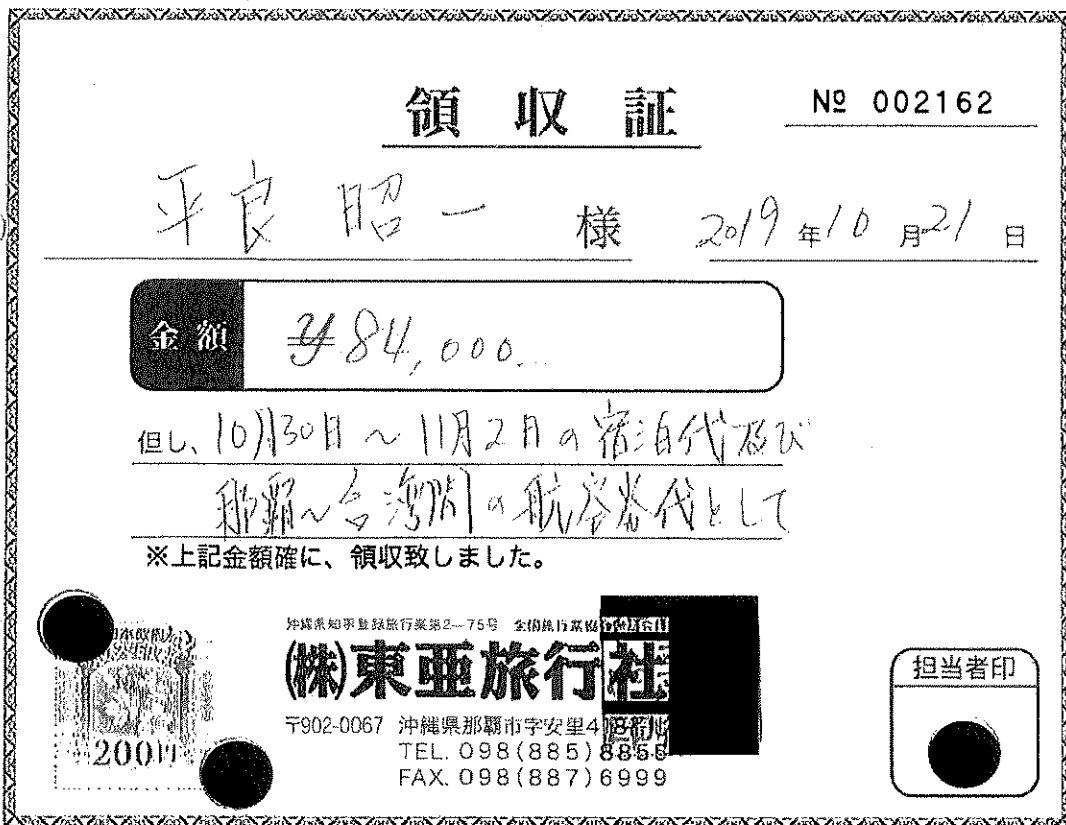 領収証
№ 002162
平良 昭一 様
2019年10月21日
金額
¥84,000
但し、10月30日～11月2日の宿泊代及び
那覇～台湾間の航空券代として
※上記金額確に、領収致しました。
沖縄県知事登録旅行業第2―75号 全国旅行業協会
(株)東亜旅行社
〒902-0067 沖縄県那覇市字安里4
TEL. 098(885)8855
FAX. 098(887)6999
200円
担当者印